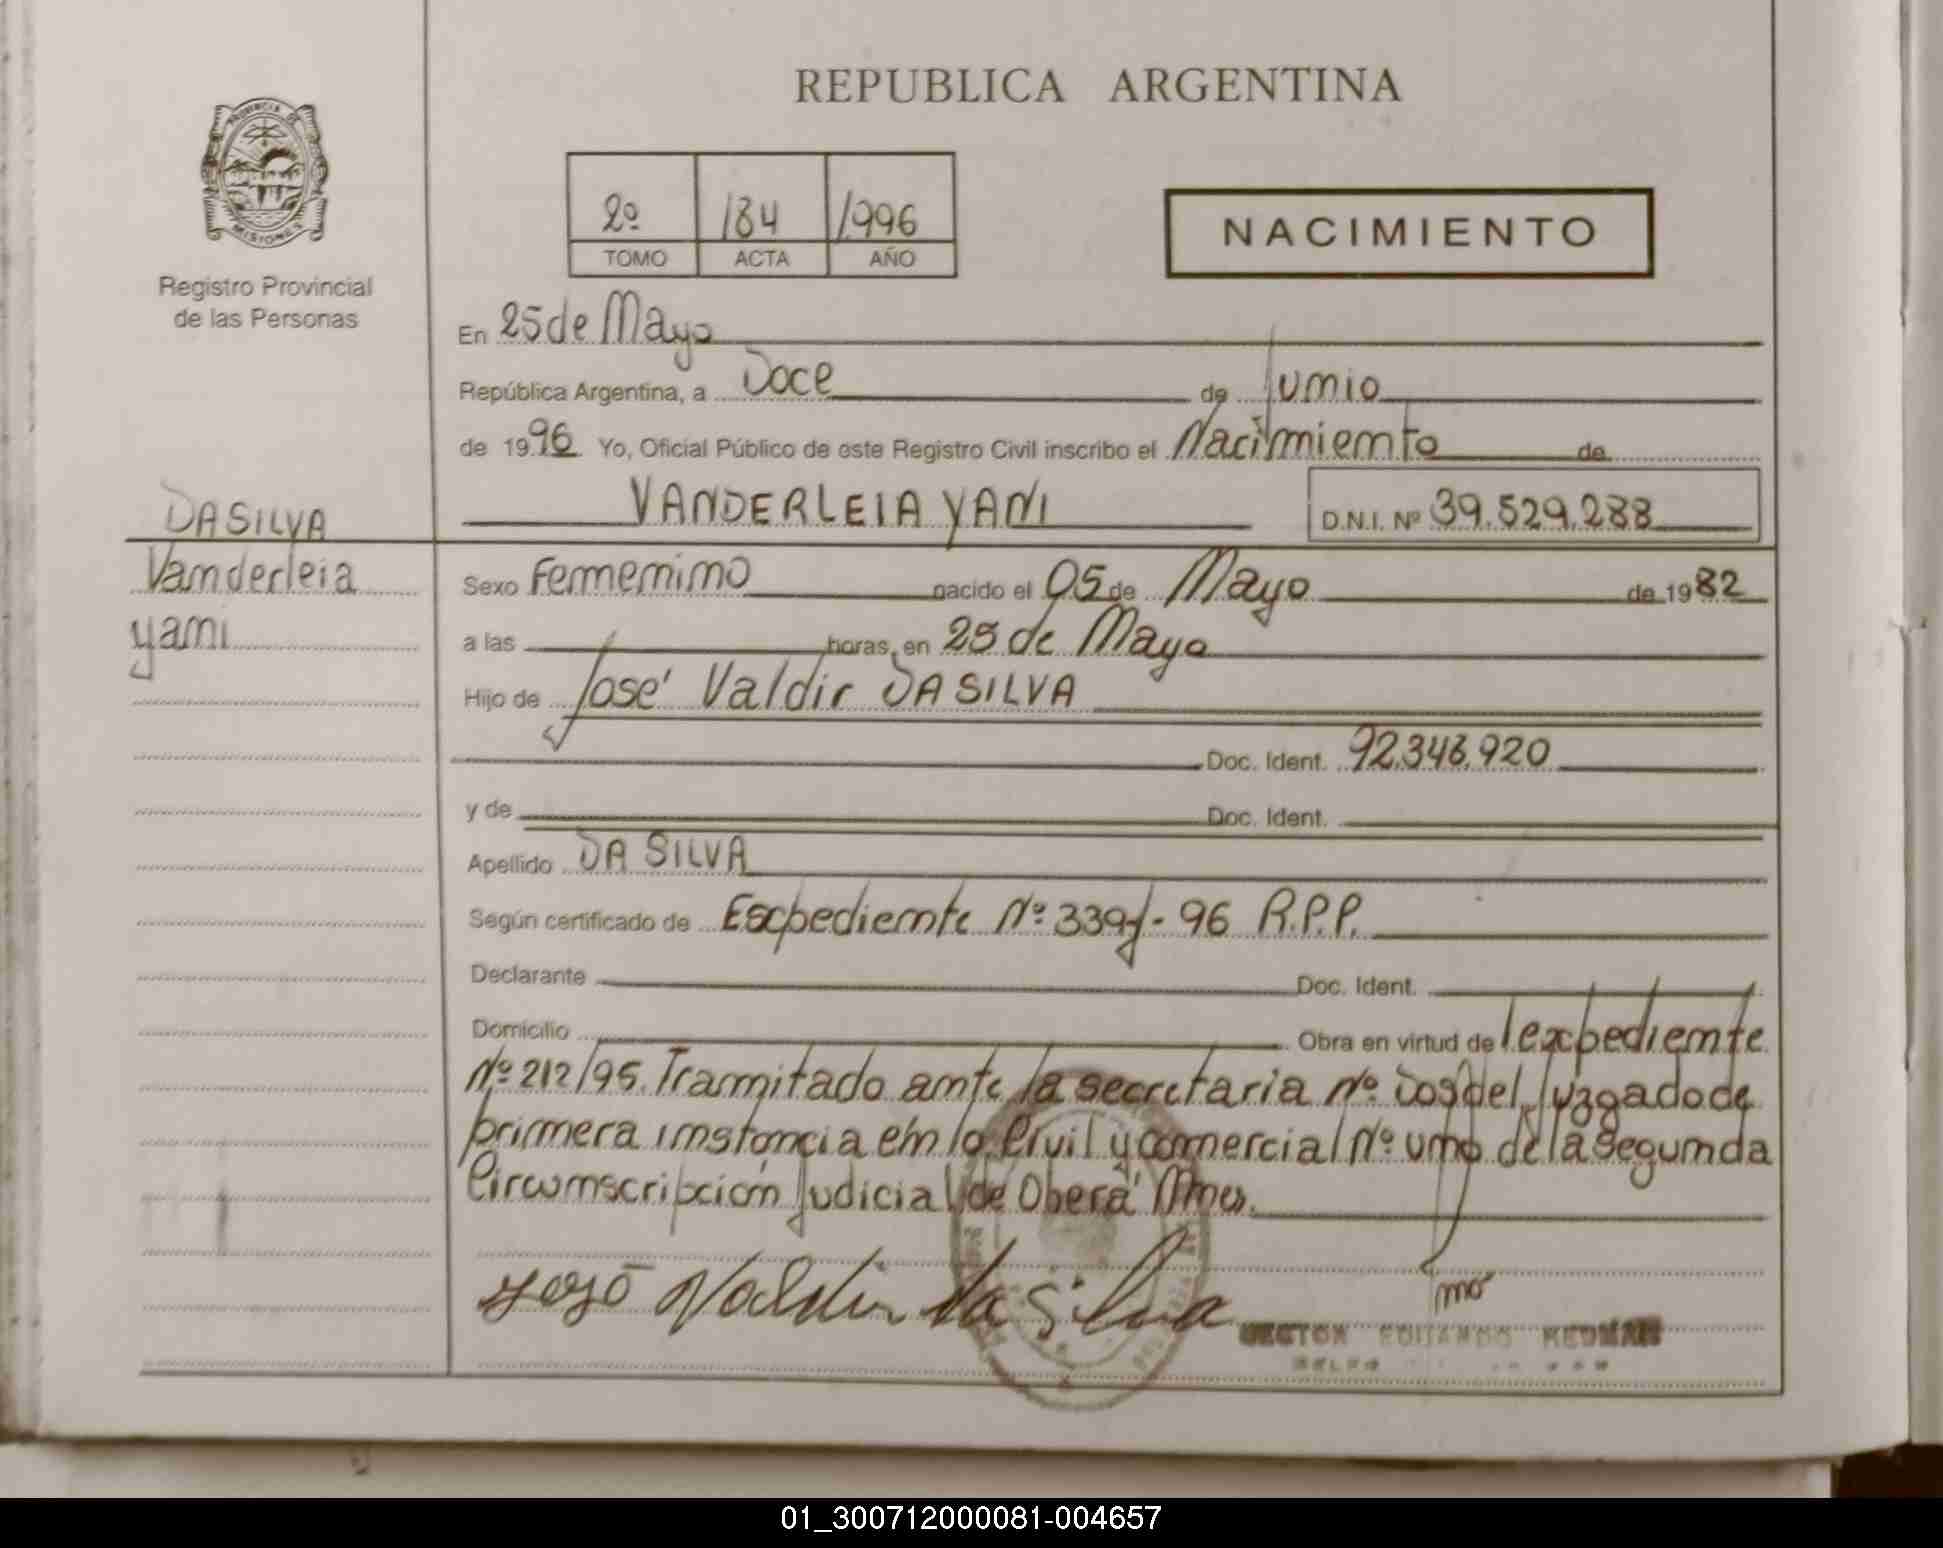 REPUBLICA ARGENTINA
PROVINCIA DE
MISIONES
Registro Provincial
de las Personas
2º 184 1996
TOMO ACTA AÑO
NACIMIENTO
En 25 de Mayo
República Argentina, a Doce de Junio
de 1996 Yo, Oficial Público de este Registro Civil inscribo el Nacimiento de
VANDERLEIA YANI D.N.I. Nº 39.529.288
DA SILVA
Vanderleia
yani
Sexo Femenino nacido el 05 de Mayo de 1982
a las horas, en 25 de Mayo
Hijo de José Valdir DA SILVA
Doc. Ident. 92.346.920
y de Doc. Ident.
Apellido DA SILVA
Según certificado de Expediente Nº 339 - 96 R.P.P.
Declarante Doc. Ident.
Domicilio Obra en virtud de expediente
Nº 212/95. Tramitado ante la secretaria nº Dos del Juzgado de
primera instancia en lo Civil y comercial Nº uno de la segunda
Circunscripción Judicial de Oberá Mnes.
José Valdir da Silva
HECTOR EDUARDO
01_300712000081-004657